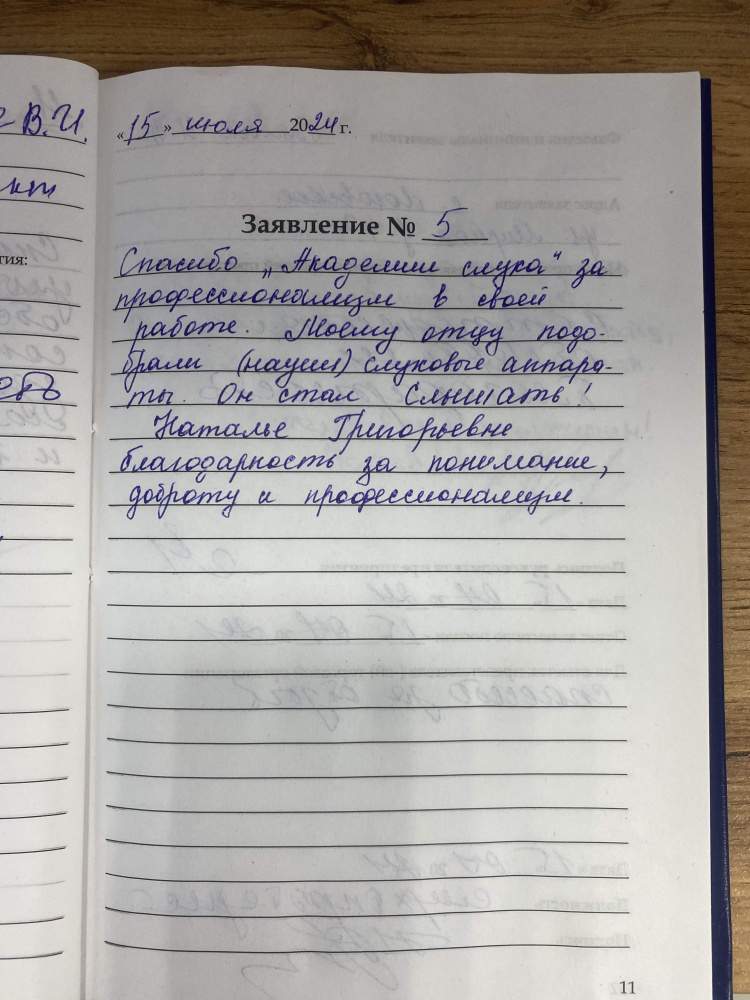 В.И.
тия:
«15» июля 2024 г.
Заявление № 5
Спасибо „Академии слуха" за
профессионализм в своей
работе. Моему отцу подо-
брали (нашли) слуховые аппара-
ты. Он стал Слышать!
Наталье Григорьевне
благодарность за понимание,
доброту и профессионализм.
11